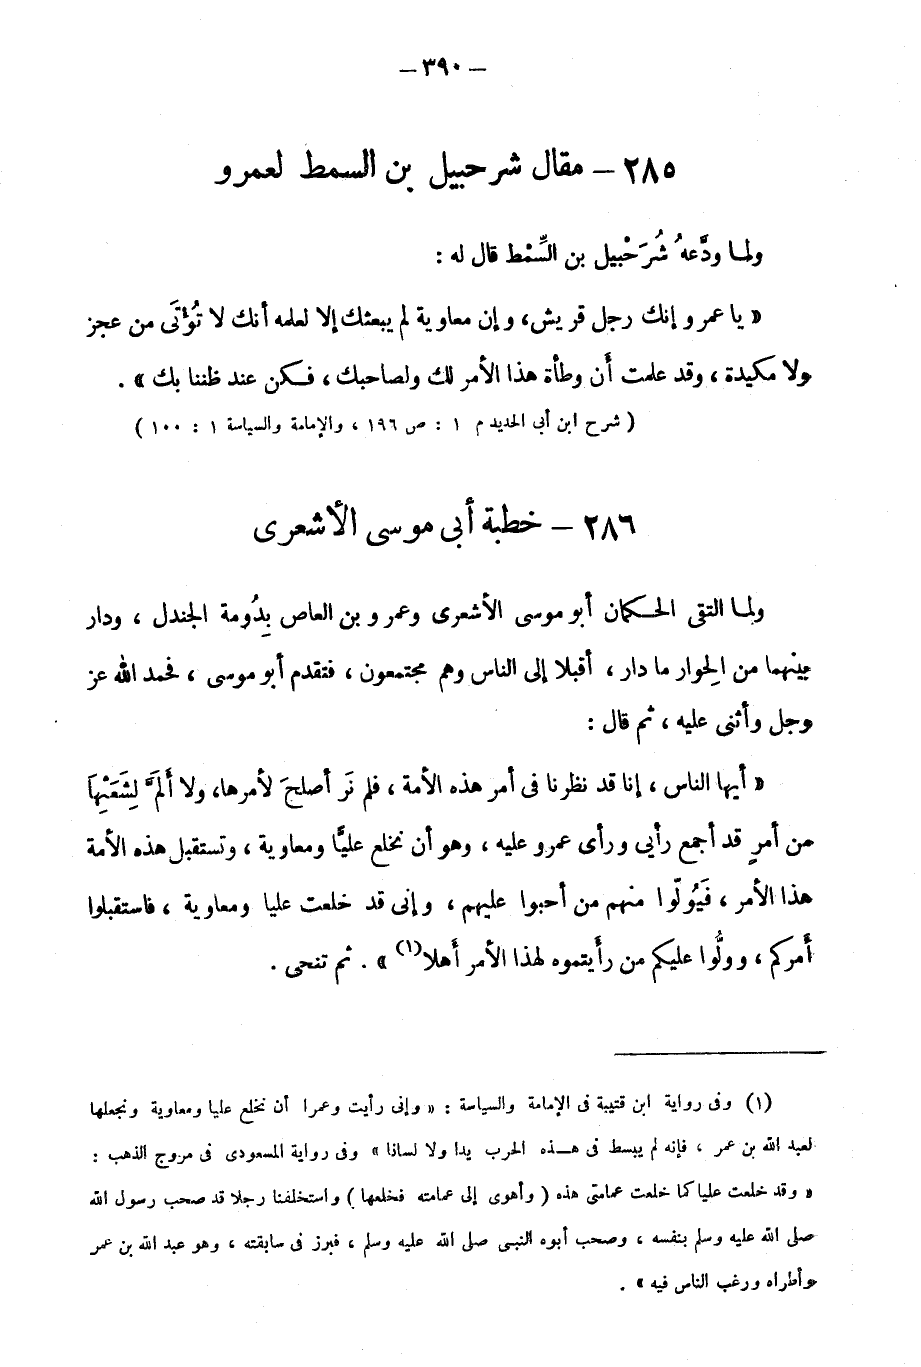 — ٣٩٠ —
٢٨٥ — مقال شرحبيل بن السمط لعمرو
ولما ودَّعهُ شُرَحْبيل بن السِّمْط قال له :
« يا عمرو إنك رجل قريش، وإن معاوية لم يبعثك إلا لعلمه أنك لا تُؤتَى من عجز
ولا مكيدة ، وقد علمت أن وطأة هذا الأمر لك ولصاحبك ، فكن عند ظننا بك » .
( شرح ابن أبى الحديد م ١ : ص ١٩٦ ، والإمامة والسياسة ١ : ١٠٠ )
٢٨٦ — خطبة أبى موسى الأشعرى
ولما التقى الحكمان أبو موسى الأشعرى وعمرو بن العاص بِدُومة الجندل ، ودار
بينهما من الحِوار ما دار ، أقبلا إلى الناس وهم مجتمعون ، فتقدم أبو موسى ، فحمد الله عز
وجل وأثنى عليه ، ثم قال :
« أيها الناس ، إنا قد نظرنا فى أمر هذه الأمة ، فلم نَر أصلحَ لأمرها، ولا ألَمَّ لِشَعَثِها
من أمرٍ قد أجمع رأيى ورأى عمرو عليه ، وهو أن نخلع عليًّا ومعاوية ، وتستقبل هذه الأمة
هذا الأمر ، فَيُولّوا منهم من أحبوا عليهم ، وإنى قد خلعت عليا ومعاوية ، فاستقبلوا
أمركم ، وولُّوا عليكم من رأيتموه لهذا الأمر أهلا(١) » . ثم تنحى .
(١) وفى رواية ابن قتيبة فى الإمامة والسياسة : « وإنى رأيت وعمرا أن نخلع عليا ومعاوية ونجعلها
لعبد الله بن عمر ، فإنه لم يبسط فى هذه الحرب يدا ولا لسانا » وفى رواية المسعودى فى مروج الذهب :
« وقد خلعت عليا كما خلعت عمامتى هذه ( وأهوى إلى عمامته فخلعها ) واستخلفنا رجلا قد صحب رسول الله
صلى الله عليه وسلم بنفسه ، وصحب أبوه النبى صلى الله عليه وسلم ، فبرز فى سابقته ، وهو عبد الله بن عمر
وأطراه ورغب الناس فيه » .